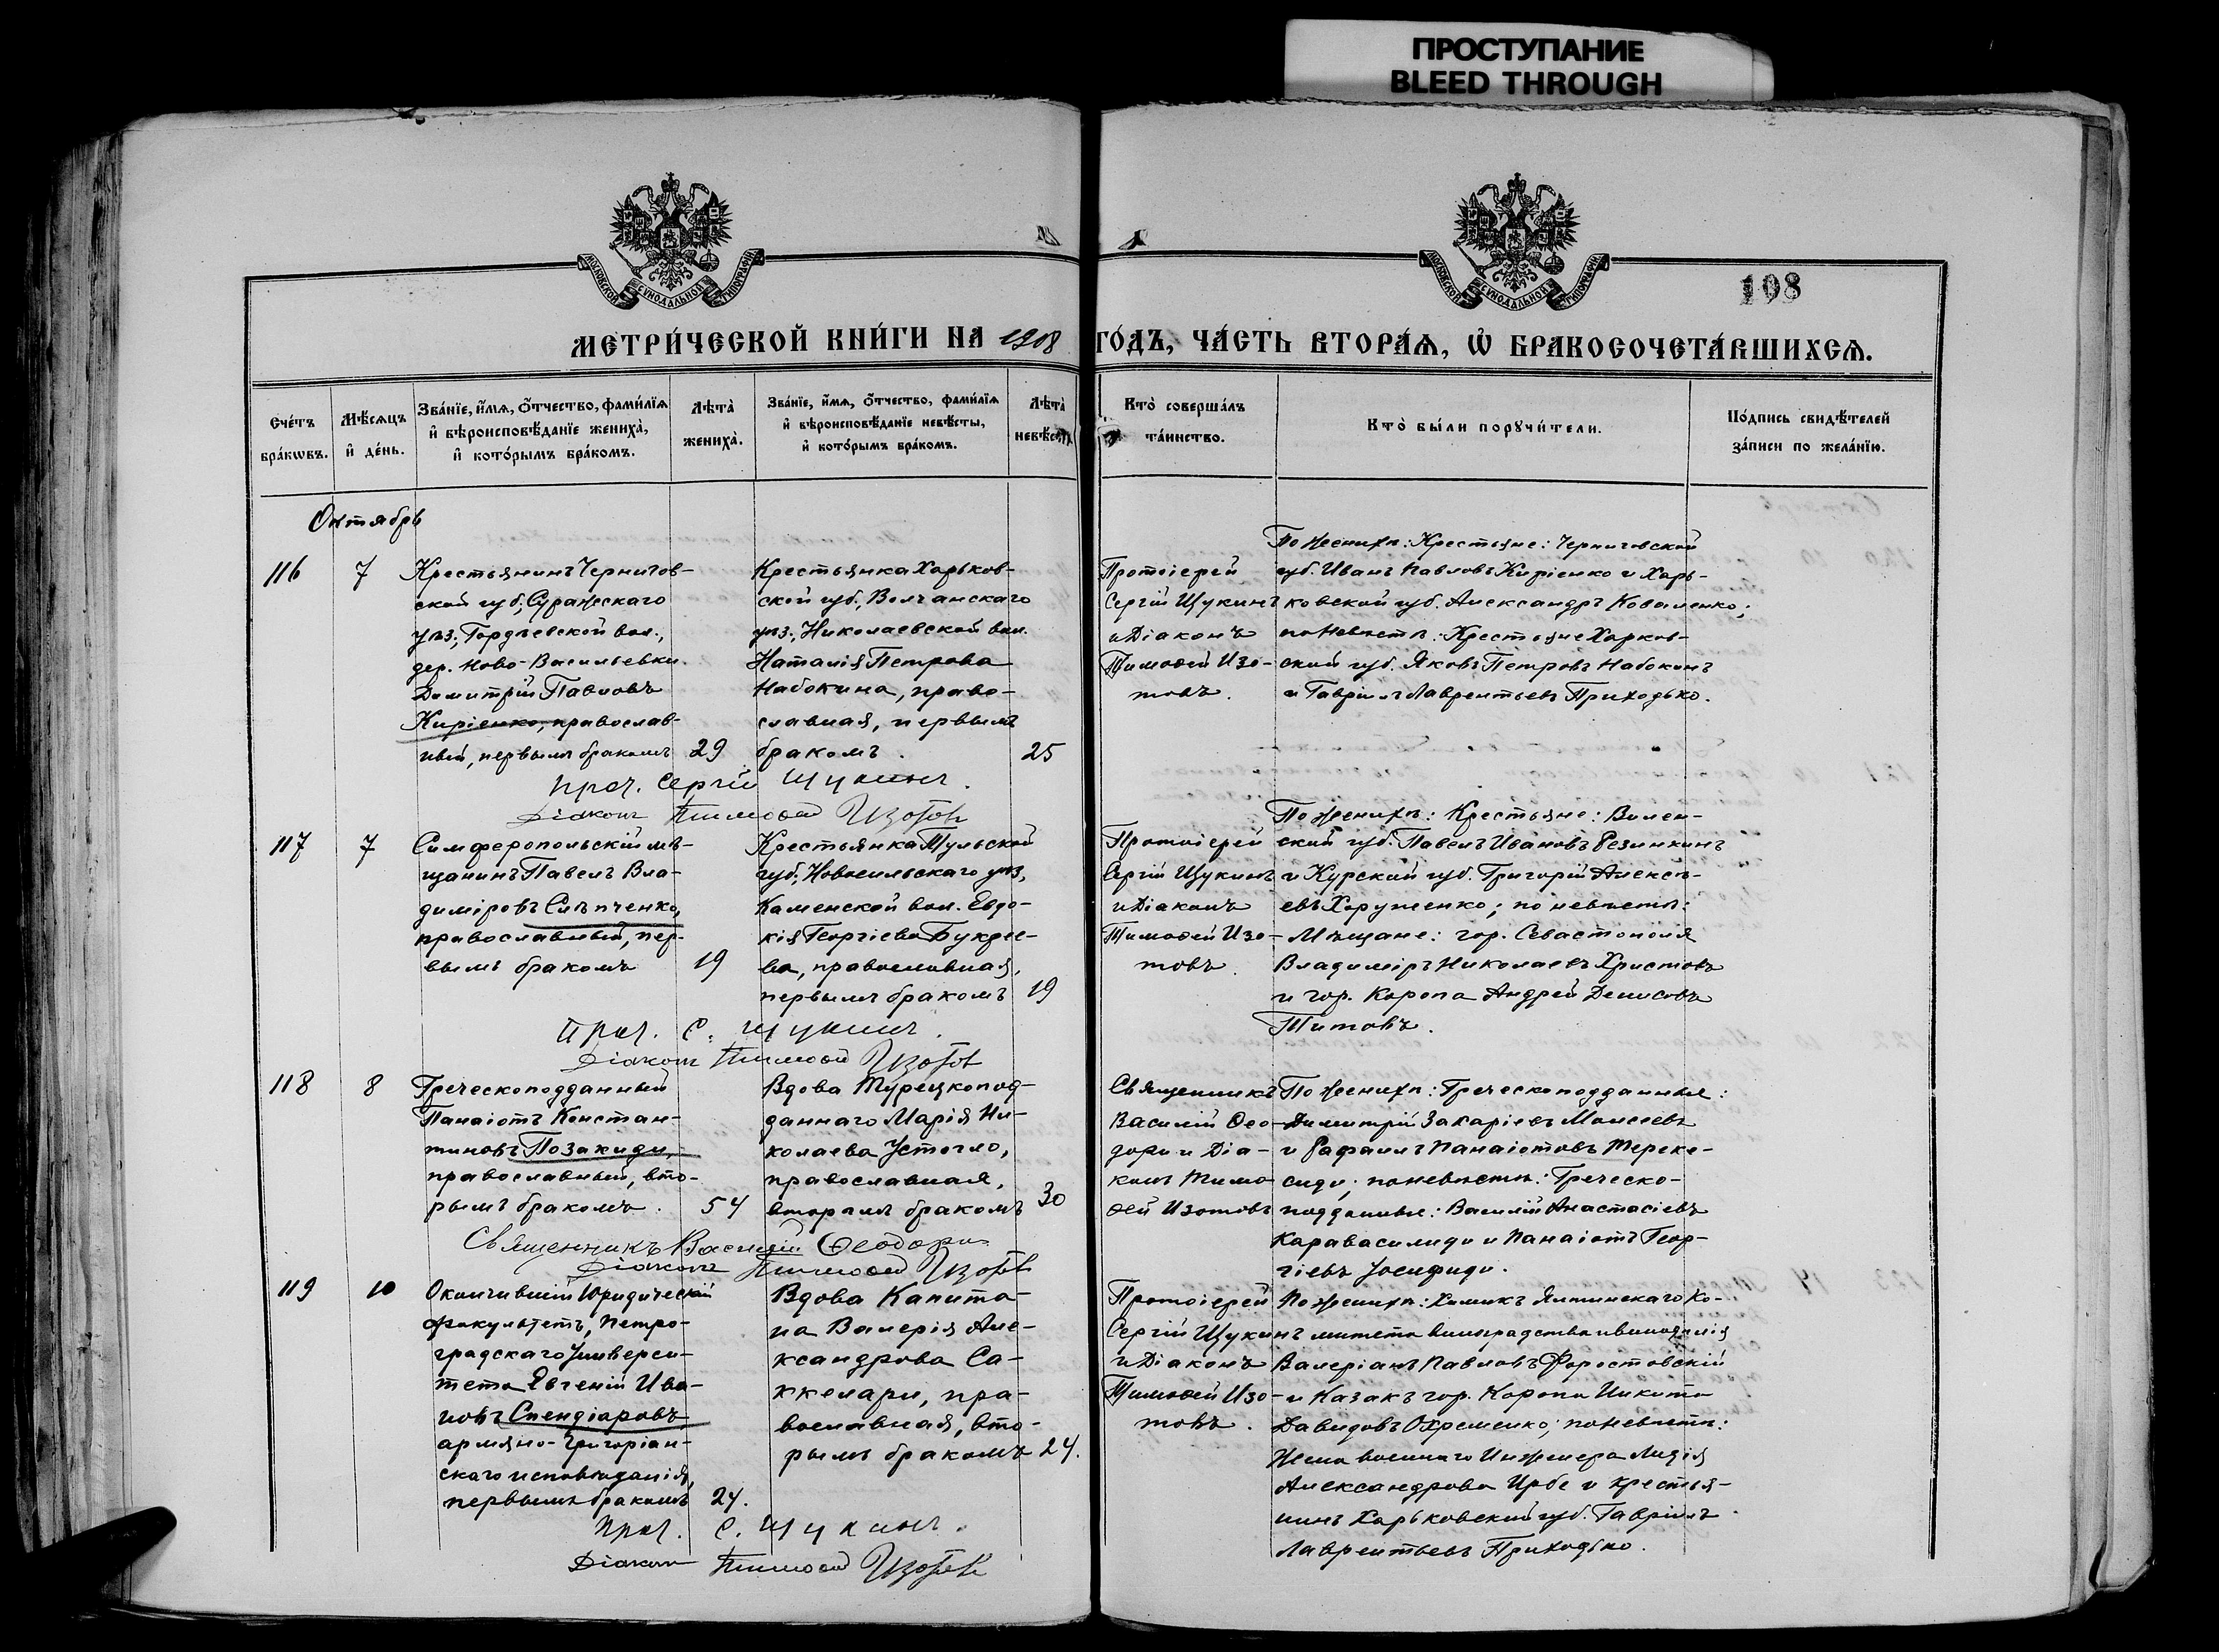 ПРОСТУПАНИЕ
BLEED THROUGH
МОСКОВСКОЙ СѴНОДАЛЬНОЙ ТИПОГРАФІИ
МОСКОВСКОЙ СѴНОДАЛЬНОЙ ТИПОГРАФІИ
108
МЕТРИ́ЧЕСКОЙ КНИ́ГИ НА 1908 ГО́ДЪ, ЧА́СТЬ ВТОРА́Ѧ, Ѡ БРАКОСОЧЕТА́ВШИХСѦ.
Сче́тъ
бра́кѡвъ.
Мѣ́сѧцъ
и҆ де́нь.
Зва́нїе, и҆́мѧ, о҆́тчество, фами́лїѧ
и҆ вѣроисповѣ́данїе жениха̀,
и҆ кото́рымъ бра́комъ.
Лѣта̀
жениха̀.
Зва́нїе, и҆́мѧ, о҆́тчество, фами́лїѧ
и҆ вѣроисповѣ́данїе невѣ́сты,
и҆ кото́рымъ бра́комъ.
Лѣта̀
невѣ́сты
Кто̀ соверша́лъ
та́инство.
Кто̀ бы́ли порꙋчи́тели.
По́дпись свидѣ́телей
за́писи по жела́нїю.
Октябрь
116
7
Крестьянинъ Чернигов-
ской губ., Суражскаго
уѣз., Гордѣевской вол.,
дер. Ново-Васильевки
Димитрій Павловъ
Киріенко, православ-
ный, первымъ бракомъ
29
Крестьянка Харьков-
ской губ., Волчанскаго
уѣз., Николаевской вол.
Наталія Петрова
Набокина, право-
славная, первымъ
бракомъ.
25
Протоіерей
Сергій Щукинъ
и Діаконъ
Тимоѳей Изо-
товъ.
По женихѣ: Крестьяне: Черниговской
губ. Иванъ Павловъ Киріенко и Харь-
ковской губ. Александръ Коваленко;
по невѣстѣ: Крестьяне Харков-
ской губ. Яковъ Петровъ Набокинъ
и Гавріилъ Лаврентьевъ Приходько.
Прот. Сергій Щукинъ.
Діаконъ Тимоѳей Изотовъ
117
7
Симферопольскій мѣ-
щанинъ Павелъ Вла-
диміровъ Слѣпченко,
православный, пер-
вымъ бракомъ
19
Крестьянка Тульской
губ., Новосильскаго уѣз.,
Каменской вол. Евдо-
кія Георгіева Букрее-
ва, православная,
первымъ бракомъ
19
Протоіерей
Сергій Щукинъ
и Діаконъ
Тимоѳей Изо-
товъ.
По женихѣ: Крестьяне: Вилен-
ской губ. Павелъ Ивановъ Резинкинъ
и Курской губ. Григорій Алексѣ-
евъ Хоруженко; по невѣстѣ:
Мѣщане: гор. Севастополя
Владиміръ Николаевъ Христовъ
и гор. Коропа Андрей Денисовъ
Титовъ.
Прот. С. Щукинъ.
Діаконъ Тимоѳей Изотовъ
118
8
Греческоподданный
Панаіотъ Констан-
тиновъ Позакиди,
православный, вто-
рымъ бракомъ.
54
Вдова Турецкопод-
даннаго Марія Ни-
колаева Устогло,
православная,
вторымъ бракомъ
30
Священникъ
Василій Ѳео-
дори и Діа-
конъ Тимо-
ѳей Изотовъ
По женихѣ: Греческоподданные:
Димитрій Захаріевъ Моисеевъ
и Рафаилъ Панаіотовъ Терке-
сиди; по невѣстѣ: Греческо-
подданные: Василій Анастасіевъ
Каравасилиди и Панаіотъ Геор-
гіевъ Іосифиди.
Священникъ Василій Ѳеодори
Діаконъ Тимоѳей Изотовъ
119
10
Окончившій Юридическій
факультетъ, Петро-
градскаго Универси-
тета Евгеній Ива-
новъ Спендіаровъ
армяно-григоріан-
скаго исповѣданія,
первымъ бракомъ
24.
Вдова Капита-
на Валерія Але-
ксандрова Са-
ккелари, пра-
вославная, вто-
рымъ бракомъ
24.
Протоіерей
Сергій Щукинъ
и Діаконъ
Тимоѳей Изо-
товъ.
По женихѣ: Химикъ Ялтинскаго Ко-
митета виноградства и винодѣлія
Валеріанъ Павловъ Форостовскій
и Казакъ гор. Коропа Никита
Давидовъ Охременко; по невѣстѣ:
Жена военнаго Инженера Лидія
Александрова Ирбе и крестья-
нинъ Харьковской губ. Гавріилъ
Лаврентьевъ Приходько.
Прот. С. Щукинъ.
Діаконъ Тимоѳей Изотовъ